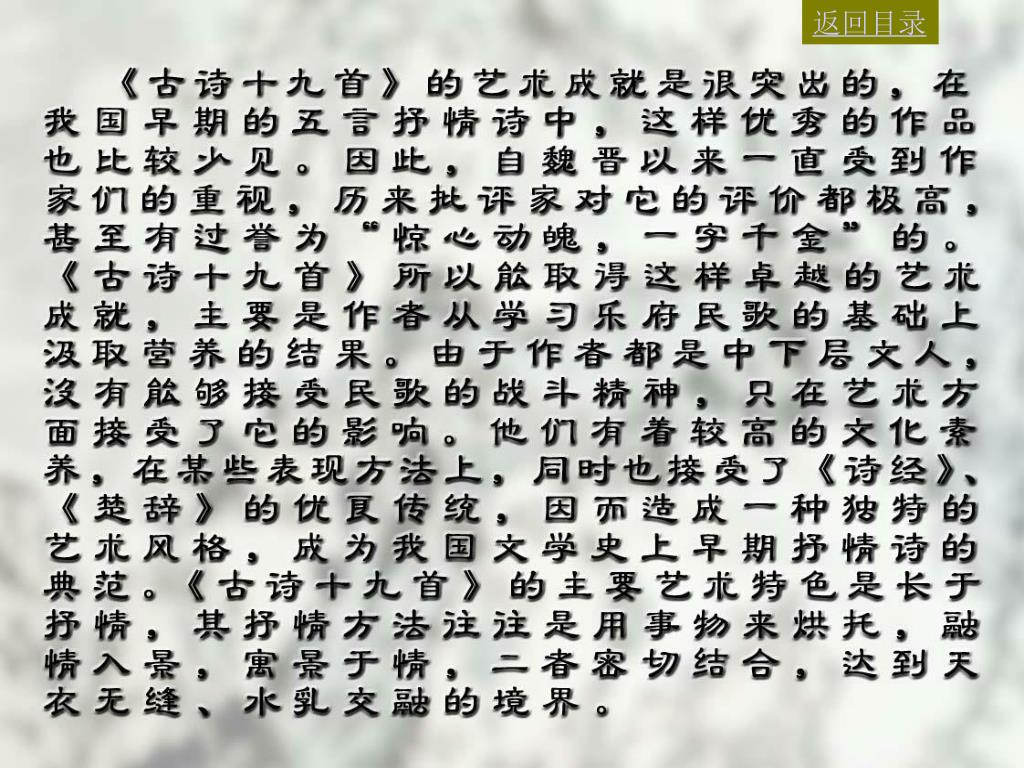 返回目录
《古诗十九首》的艺术成就是很突出的，在
我国早期的五言抒情诗中，这样优秀的作品
也比较少见。因此，自魏晋以来一直受到作
家们的重视，历来批评家对它的评价都极高，
甚至有过誉为“惊心动魄，一字千金”的。
《古诗十九首》所以能取得这样卓越的艺术
成就，主要是作者从学习乐府民歌的基础上
汲取营养的结果。由于作者都是中下层文人，
没有能够接受民歌的战斗精神，只在艺术方
面接受了它的影响。他们有着较高的文化素
养，在某些表现方法上，同时也接受了《诗经》、
《楚辞》的优良传统，因而造成一种独特的
艺术风格，成为我国文学史上早期抒情诗的
典范。《古诗十九首》的主要艺术特色是长于
抒情，其抒情方法往往是用事物来烘托，融
情入景，寓景于情，二者密切结合，达到天
衣无缝、水乳交融的境界。